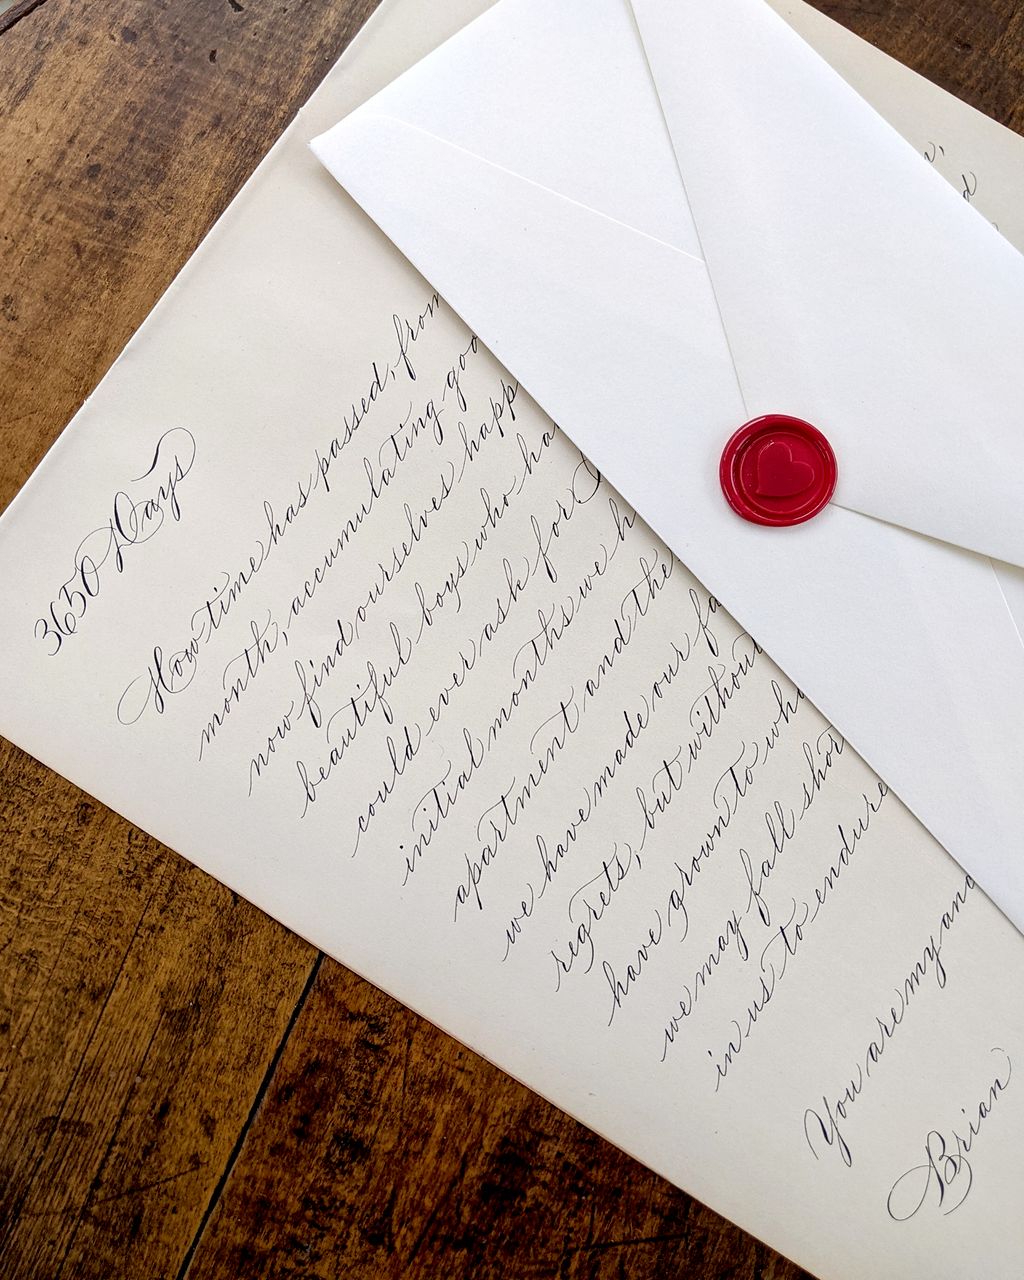 3650 Days
How time has passed, from
month, accumulating
now find ourselves
beautiful boys who
could ever ask for
initial months we
apartment and the
we have made our
regrets, but without
have grown to
we may fall short
in us to endure
You are my
Brian